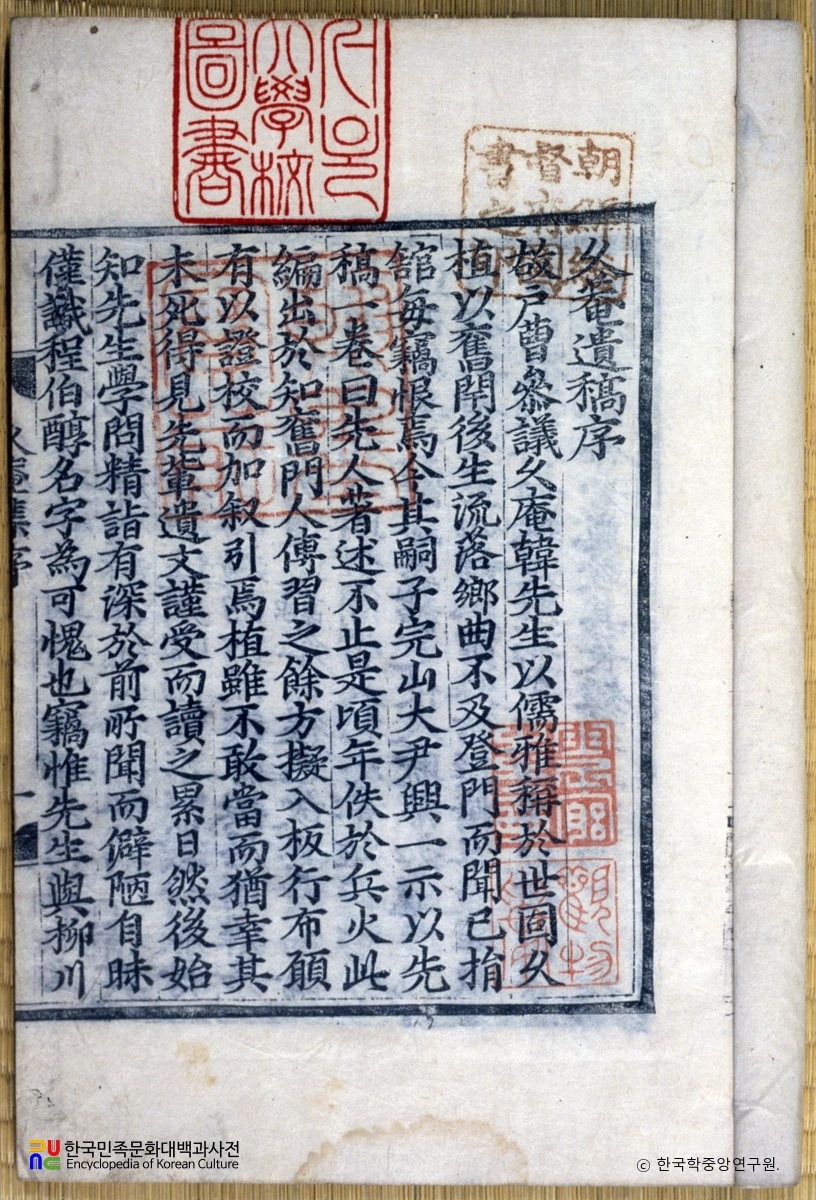 서울
大學校
圖書
朝鮮總
督府圖
書之印
久菴遺稿序
故戶曹叅議久庵韓先生以儒雅稱於世固久
植以舊閈後生流落鄉曲不及登門而聞已捐
舘每竊恨焉今其嗣子完山大尹興一示以先
稿一卷曰先人著述不止是頃年佚於兵火此
編出於知舊門人傳習之餘方擬入板行布願
有以證校而加叙引焉植雖不敢當而猶幸其
未死得見先輩遺文謹受而讀之累日然後始
知先生學問精詣有深於前所聞而僻陋自昧
僅識程伯醇名字為可愧也竊惟先生與柳川
久庵集序
一
觀物
한국민족문화대백과사전
Encyclopedia of Korean Culture
© 한국학중앙연구원.